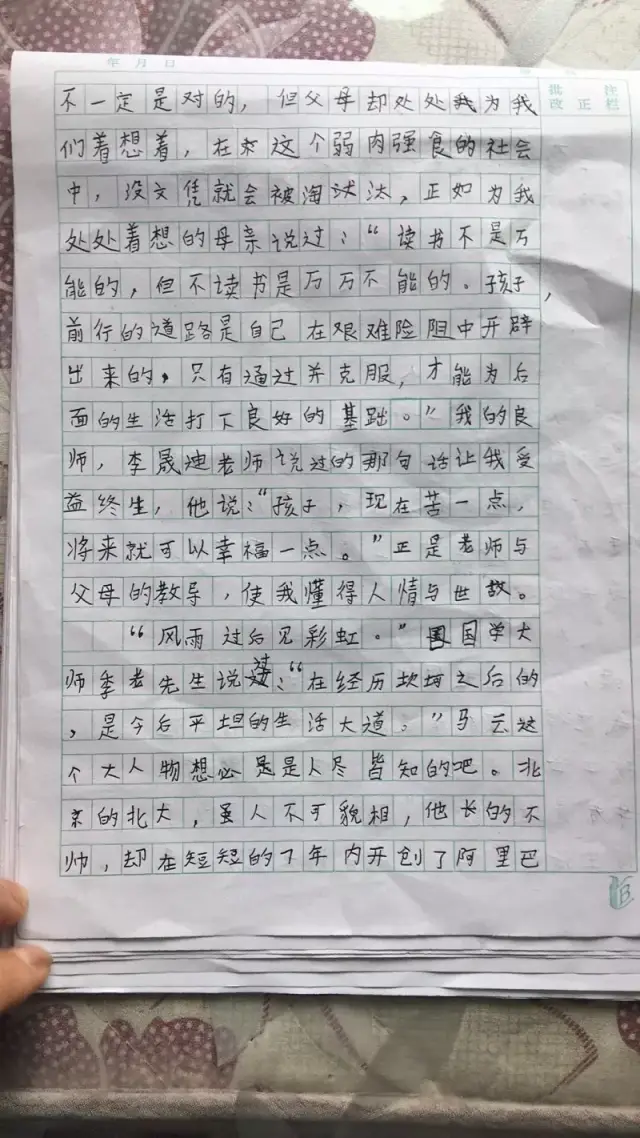 年 月 日
批 注
改 正 栏
不一定是对的，但父母却处处为我
们着想着，在这个弱肉强食的社会
中，没文凭就会被淘汰，正如为我
处处着想的母亲说过：“读书不是万
能的，但不读书是万万不能的。孩子，
前行的道路是自己在艰难险阻中开辟
出来的，只有通过并克服，才能为后
面的生活打下良好的基础。”我的良
师，李晟迪老师说过的那句话让我受
益终生，他说：“孩子，现在苦一点，
将来就可以幸福一点。”正是老师与
父母的教导，使我懂得人情与世故。
“风雨过后见彩虹。”国学大
师季老先生说过：“在经历坎坷之后的
，是今后平坦的生活大道。”马云这
个大人物想必是是人尽皆知的吧。北
京的北大，虽人不可貌相，他长的不
帅，却在短短的7年内开创了阿里巴